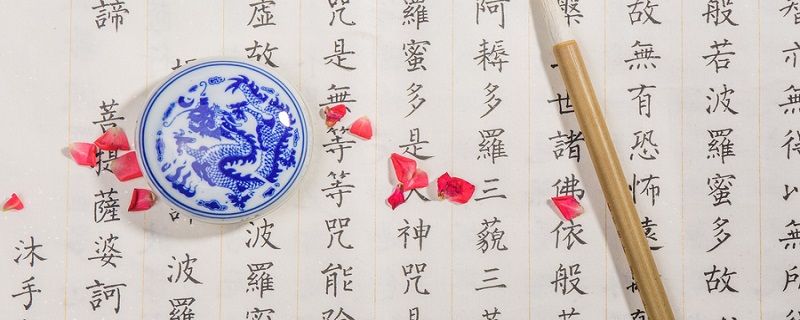 智亦無得以無所
般若波羅蜜多故
故無有恐怖遠
槃世諸佛依般
阿耨多羅三藐三
羅蜜多是神咒是
咒是無等等咒能除
虛故波羅
波羅
諦菩提薩婆訶
沐手